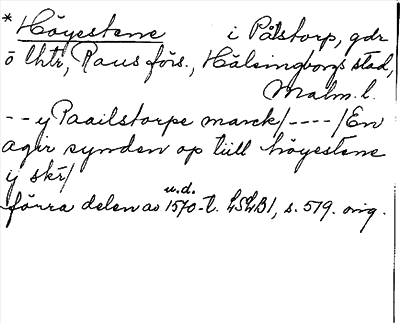 * Höyestene i Pålstorp, gdr
ö lhtr, Raus förs., Hälsingborgs stad,
Malm. l.
-- y Paailstorpe marck/----/En
ager synden op tiill höyestene
y skr/
förra delen av u.d. 1570-t. LSLB1, s. 579. orig.